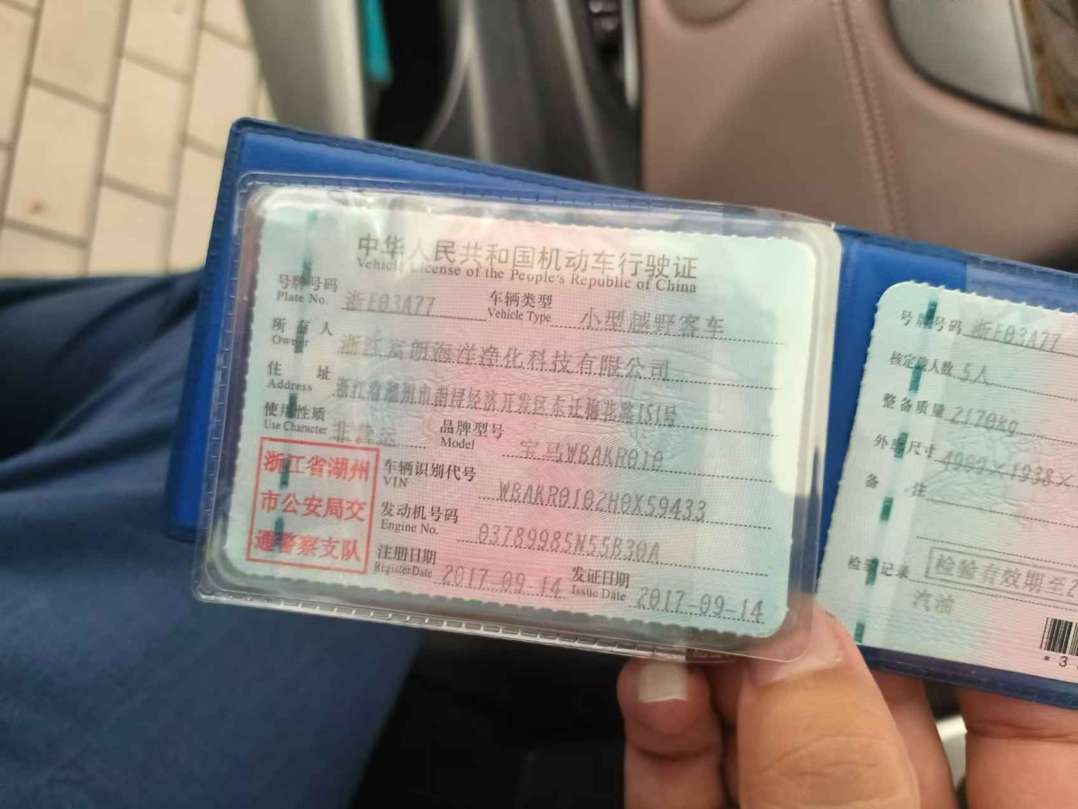 中华人民共和国机动车行驶证
Vehicle License of the People's Republic of China
号牌号码 浙E03A77 车辆类型 小型越野客车
Plate No. Vehicle Type
所有人 浙江高朗海洋净化科技有限公司
Owner
住址 浙江省湖州市南浔经济开发区东迁梅花路151号
Address
使用性质 非营运 品牌型号 宝马WBAKR010
Use Character Model
浙江省湖州
市公安局交
通警察支队
车辆识别代号 WBAKR0102H0X59433
VIN
发动机号码 03789985N55B30A
Engine No.
注册日期 2017-09-14 发证日期 2017-09-14
Register Date Issue Date
号牌号码 浙E03A77
核定载人数 5人
整备质量 2170kg
外廓尺寸 4909×1938×
备注
检验记录 检验有效期至2
汽油
*3